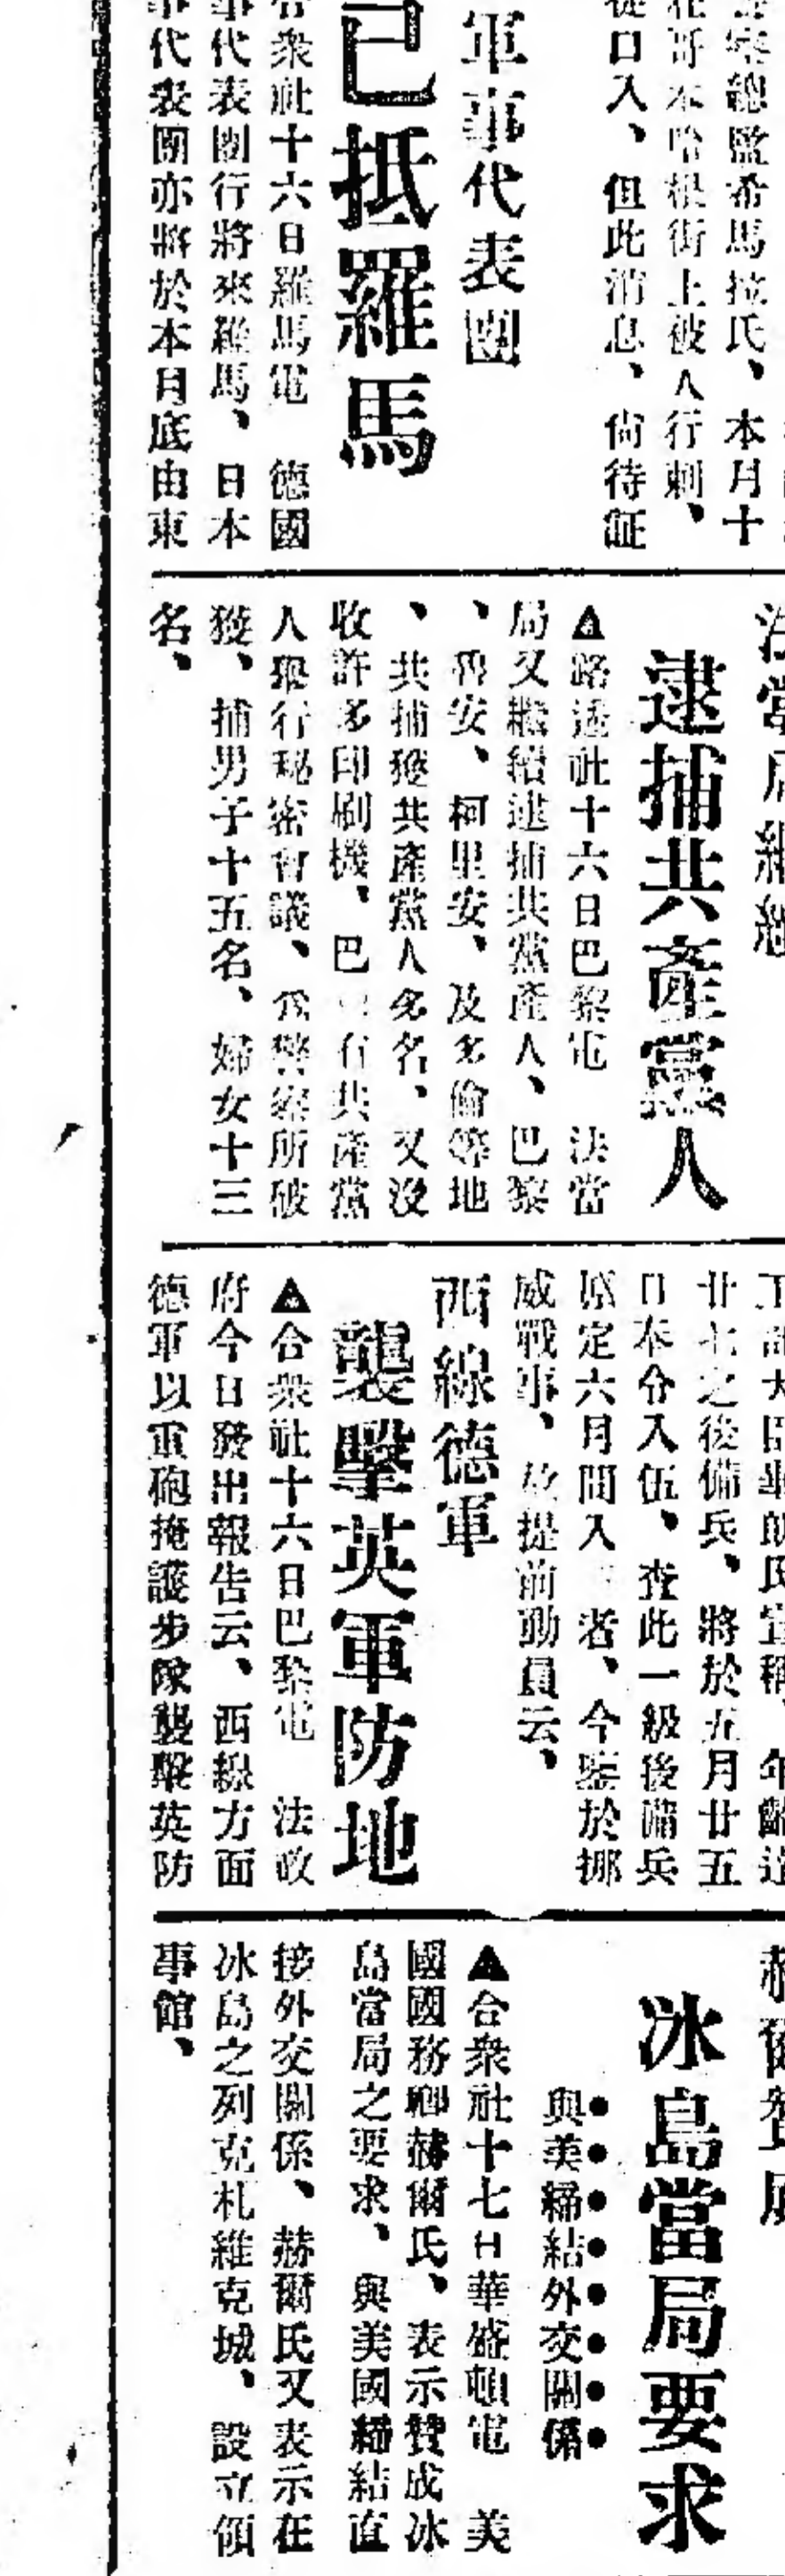 總監希馬拉氏、本月十
哥本哈根街上被人行刺、
從口入、但此消息、尙待証
軍事代表團
已抵羅馬
合衆社十六日羅馬電　德國
事代表團行將來羅馬、日本
事代表團亦將於本月底由東
法當局繼續
逮捕共產黨人
▲路透社十六日巴黎電　法當
局又繼續逮捕共黨產人、巴黎
、安、柯里安、及多倫等地
、共捕獲共產黨人多名、又沒
收許多印刷機、巴有共產黨
人舉行秘密會議、爲警察所破
獲、捕男子十五名、婦女十三
名、
大臣氏宣稱、年齡達
廿七之後備兵、將於五月廿五
日奉令入伍、查此一級後備兵
原定六月間入者、今鑒於挪
威戰事、故提前動員云、
西線德軍
襲擊英軍防地
▲合衆社十六日巴黎電　法政
府今日發出報告云、西線方面
德軍以重砲掩護步隊襲擊英防
赫爾贊成
冰島當局要求
與美締結外交關係
▲合衆社十七日華盛頓電　美
國國務卿赫爾氏、表示贊成冰
島當局之要求、與美國締結直
接外交關係、赫爾氏又表示在
冰島之列克札維克城、設立領
事館、